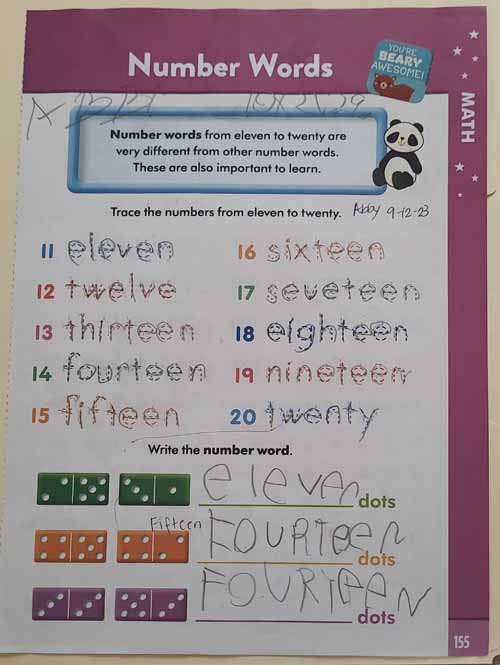 Number Words
YOU'RE
BEARY
AWESOME!
MATH
Number words from eleven to twenty are
very different from other number words.
These are also important to learn.
Trace the numbers from eleven to twenty. Abby 9-12-23
11 eleven
12 twelve
13 thirteen
14 fourteen
15 fifteen
16 sixteen
17 seveteen
18 eighteen
19 nineteen
20 twenty
Write the number word.
eleven dots
Fifteen FOURTEEN dots
FOURTEEN dots
155